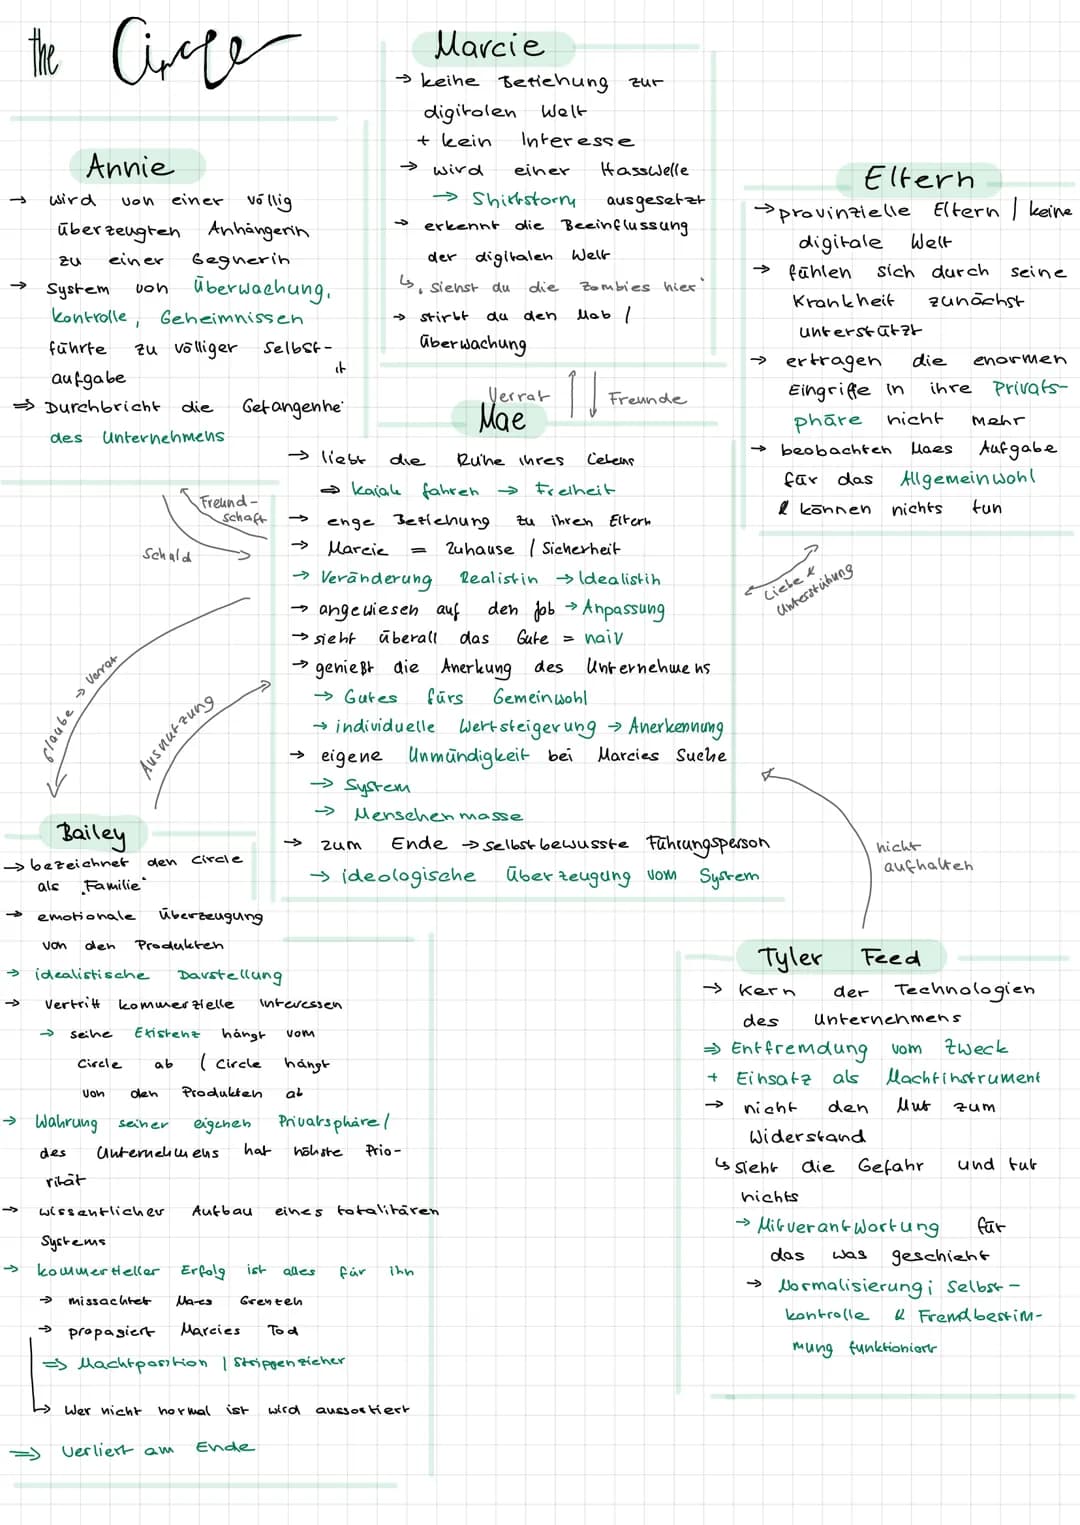 the Circle
Marcie
→ keine Beziehung zur
digitalen Welt
+ kein Interesse
→ wird einer Hasswelle
→ Shitstorm ausgesetzt
→ erkennt die Beeinflussung
der digitalen Welt
↳ „siehst du die Zombies hier"
→ stirbt du den Mob /
Überwachung
Annie
→ wird von einer völlig
überzeugten Anhängerin
zu einer Gegnerin
→ System von Überwachung,
Kontrolle, Geheimnissen
führte zu völliger Selbst-
aufgabe
⇒ Durchbricht die Gefangenheit
des Unternehmens
Eltern
→ provinzielle Eltern / keine
digitale Welt
→ fühlen sich durch seine
Krankheit zunächst
unterstützt
→ ertragen die enormen
Eingriffe in ihre Privats-
phäre nicht mehr
→ beobachten Maes Aufgabe
für das Allgemeinwohl
& können nichts tun
Verrat
Freunde
Mae
→ liebt die Ruhe ihres Lebens
⇒ Kajak fahren → Freiheit
→ enge Beziehung zu ihren Eltern
→ Marcie = Zuhause / Sicherheit
→ Veränderung Realistin → Idealistin
→ angewiesen auf den Job → Anpassung
→ sieht überall das Gute = naiv
→ genießt die Anerkung des Unternehmens
→ Gutes fürs Gemeinwohl
→ individuelle Wertsteigerung → Anerkennung
→ eigene Unmündigkeit bei Marcies Suche
→ System
→ Menschenmasse
→ zum Ende → selbstbewusste Führungsperson
→ ideologische Überzeugung vom System
Freund-
schaft
Schuld
Liebe &
Unterstützung
Glaube → Verrat
Ausnutzung
nicht
aufhalten
Bailey
→ bezeichnet den Circle
als „Familie"
→ emotionale Überzeugung
von den Produkten
→ idealistische Darstellung
→ Vertritt kommerzielle Interessen
→ seine Existenz hängt vom
Circle ab / Circle hängt
von den Produkten ab
→ Wahrung seiner eigenen Privatsphäre /
des Unternehmens hat höhste Prio-
rität
→ wissentlicher Aufbau eines totalitären
Systems
→ kommerzieller Erfolg ist alles für ihn
→ missachtet Maes Grenzen
→ propagiert Marcies Tod
⇒ Machtposition / Strippenzieher
↳ Wer nicht normal ist wird aussortiert
⇒ verliert am Ende
Tyler Feed
→ Kern der Technologien
des Unternehmens
⇒ Entfremdung vom Zweck
+ Einsatz als Machtinstrument
→ nicht den Mut zum
Widerstand
↳ sieht die Gefahr und tut
nichts
→ Mitverantwortung für
das was geschieht
→ Normalisierung; Selbst-
kontrolle & Fremdbestim-
mung funktioniert